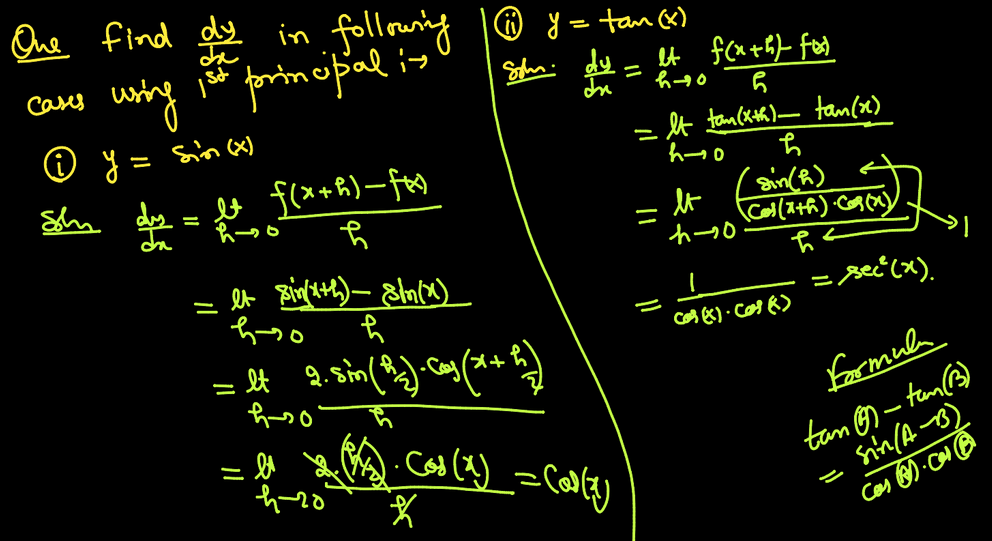 Que Find dy/dx in following
cases using 1st principal :→
(i) y = sin(x)
Soln dy/dx = lt h→0 f(x+h) − f(x) / h
= lt h→0 sin(x+h) − sin(x) / h
= lt h→0 2·sin(h/2)·cos(x + h/2) / h
= lt h→0 2·(h/2)·Cos(x) / h = Cos(x)
(ii) y = tan(x)
Soln: dy/dx = lt h→0 f(x+h) − f(x) / h
= lt h→0 tan(x+h) − tan(x) / h
= lt h→0 (sin(h) / cos(x+h)·cos(x)) / h → 1
= 1 / cos(x)·cos(x) = sec²(x).
Formula
tan(A) − tan(B)
= sin(A−B) / cos(A)·cos(B)